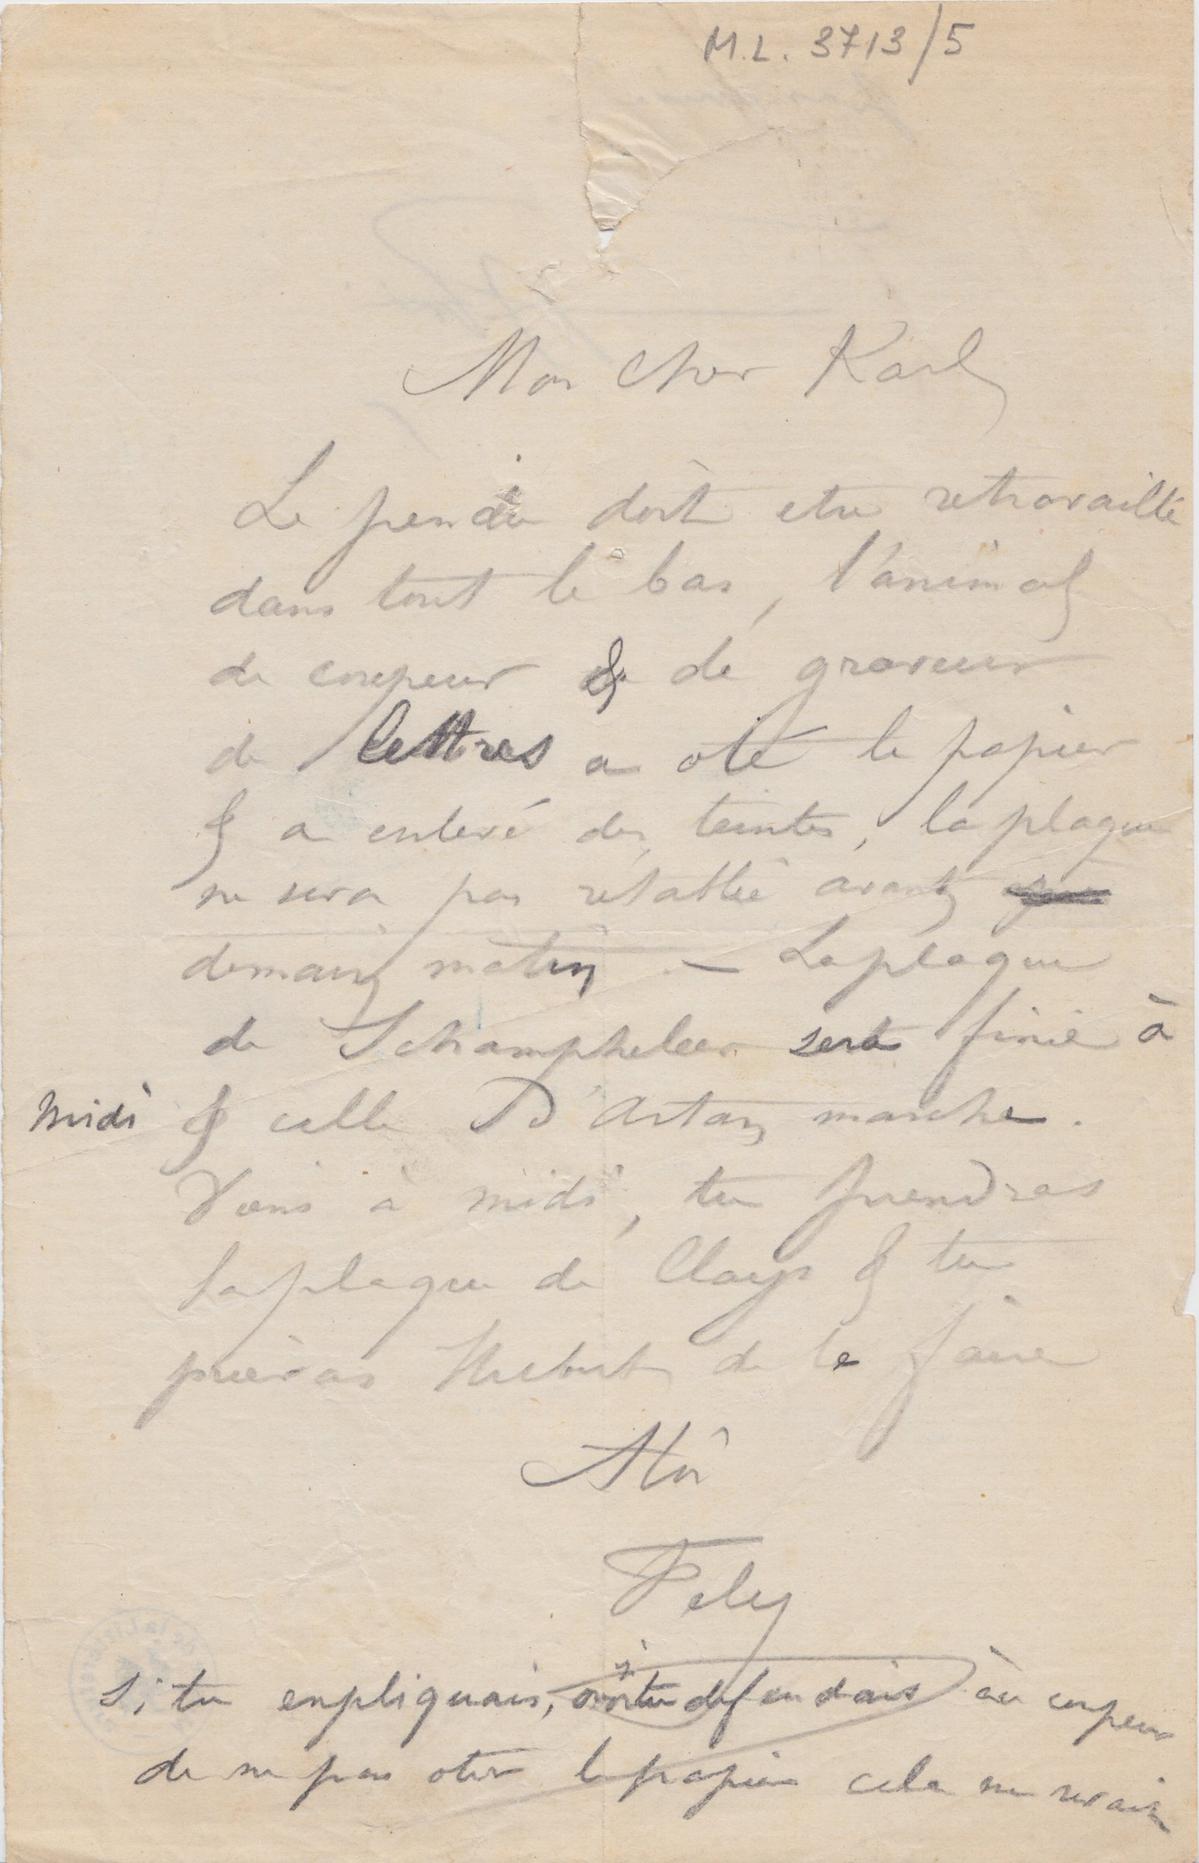 M.L. 3713/5
Mon cher Karl
Le pendu doit etre retravaillé
dans tout le bas, l'animal
de coupeur & de graveur
de lettres a oté le papier
& a enlevé des teintes, la plaque
ne sera pas rétablie avant
demain matin. — La plaque
de Schampheleer sera finie à
midi & celle D'Artan marche.
Viens à midi, tu prendras
la plaque de Clays & tu
prieras Huebert de le faire
Atoi
Fely
Si tu expliquais, si tu defendais au coupeur
de ne pas oter le papier cela ne serait